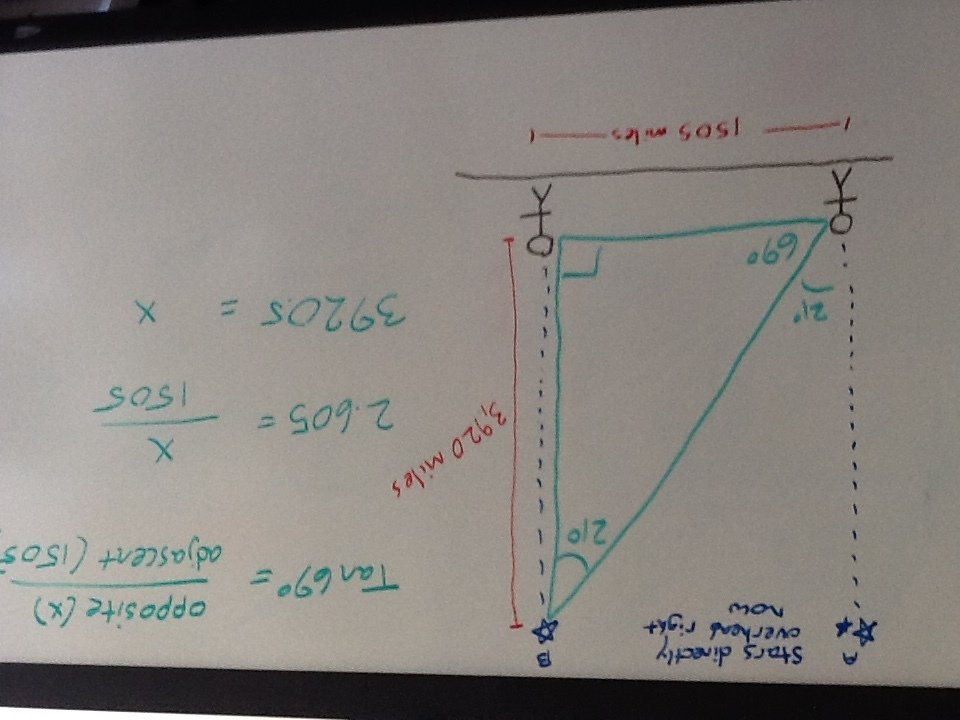 A
Stars directly
overhead right
now
B
21°
3,920 miles
21°
69°
1505 miles
Tan 69° = opposite (x)
adjascent (1505
2.605 = x
1505
3920.5 = x